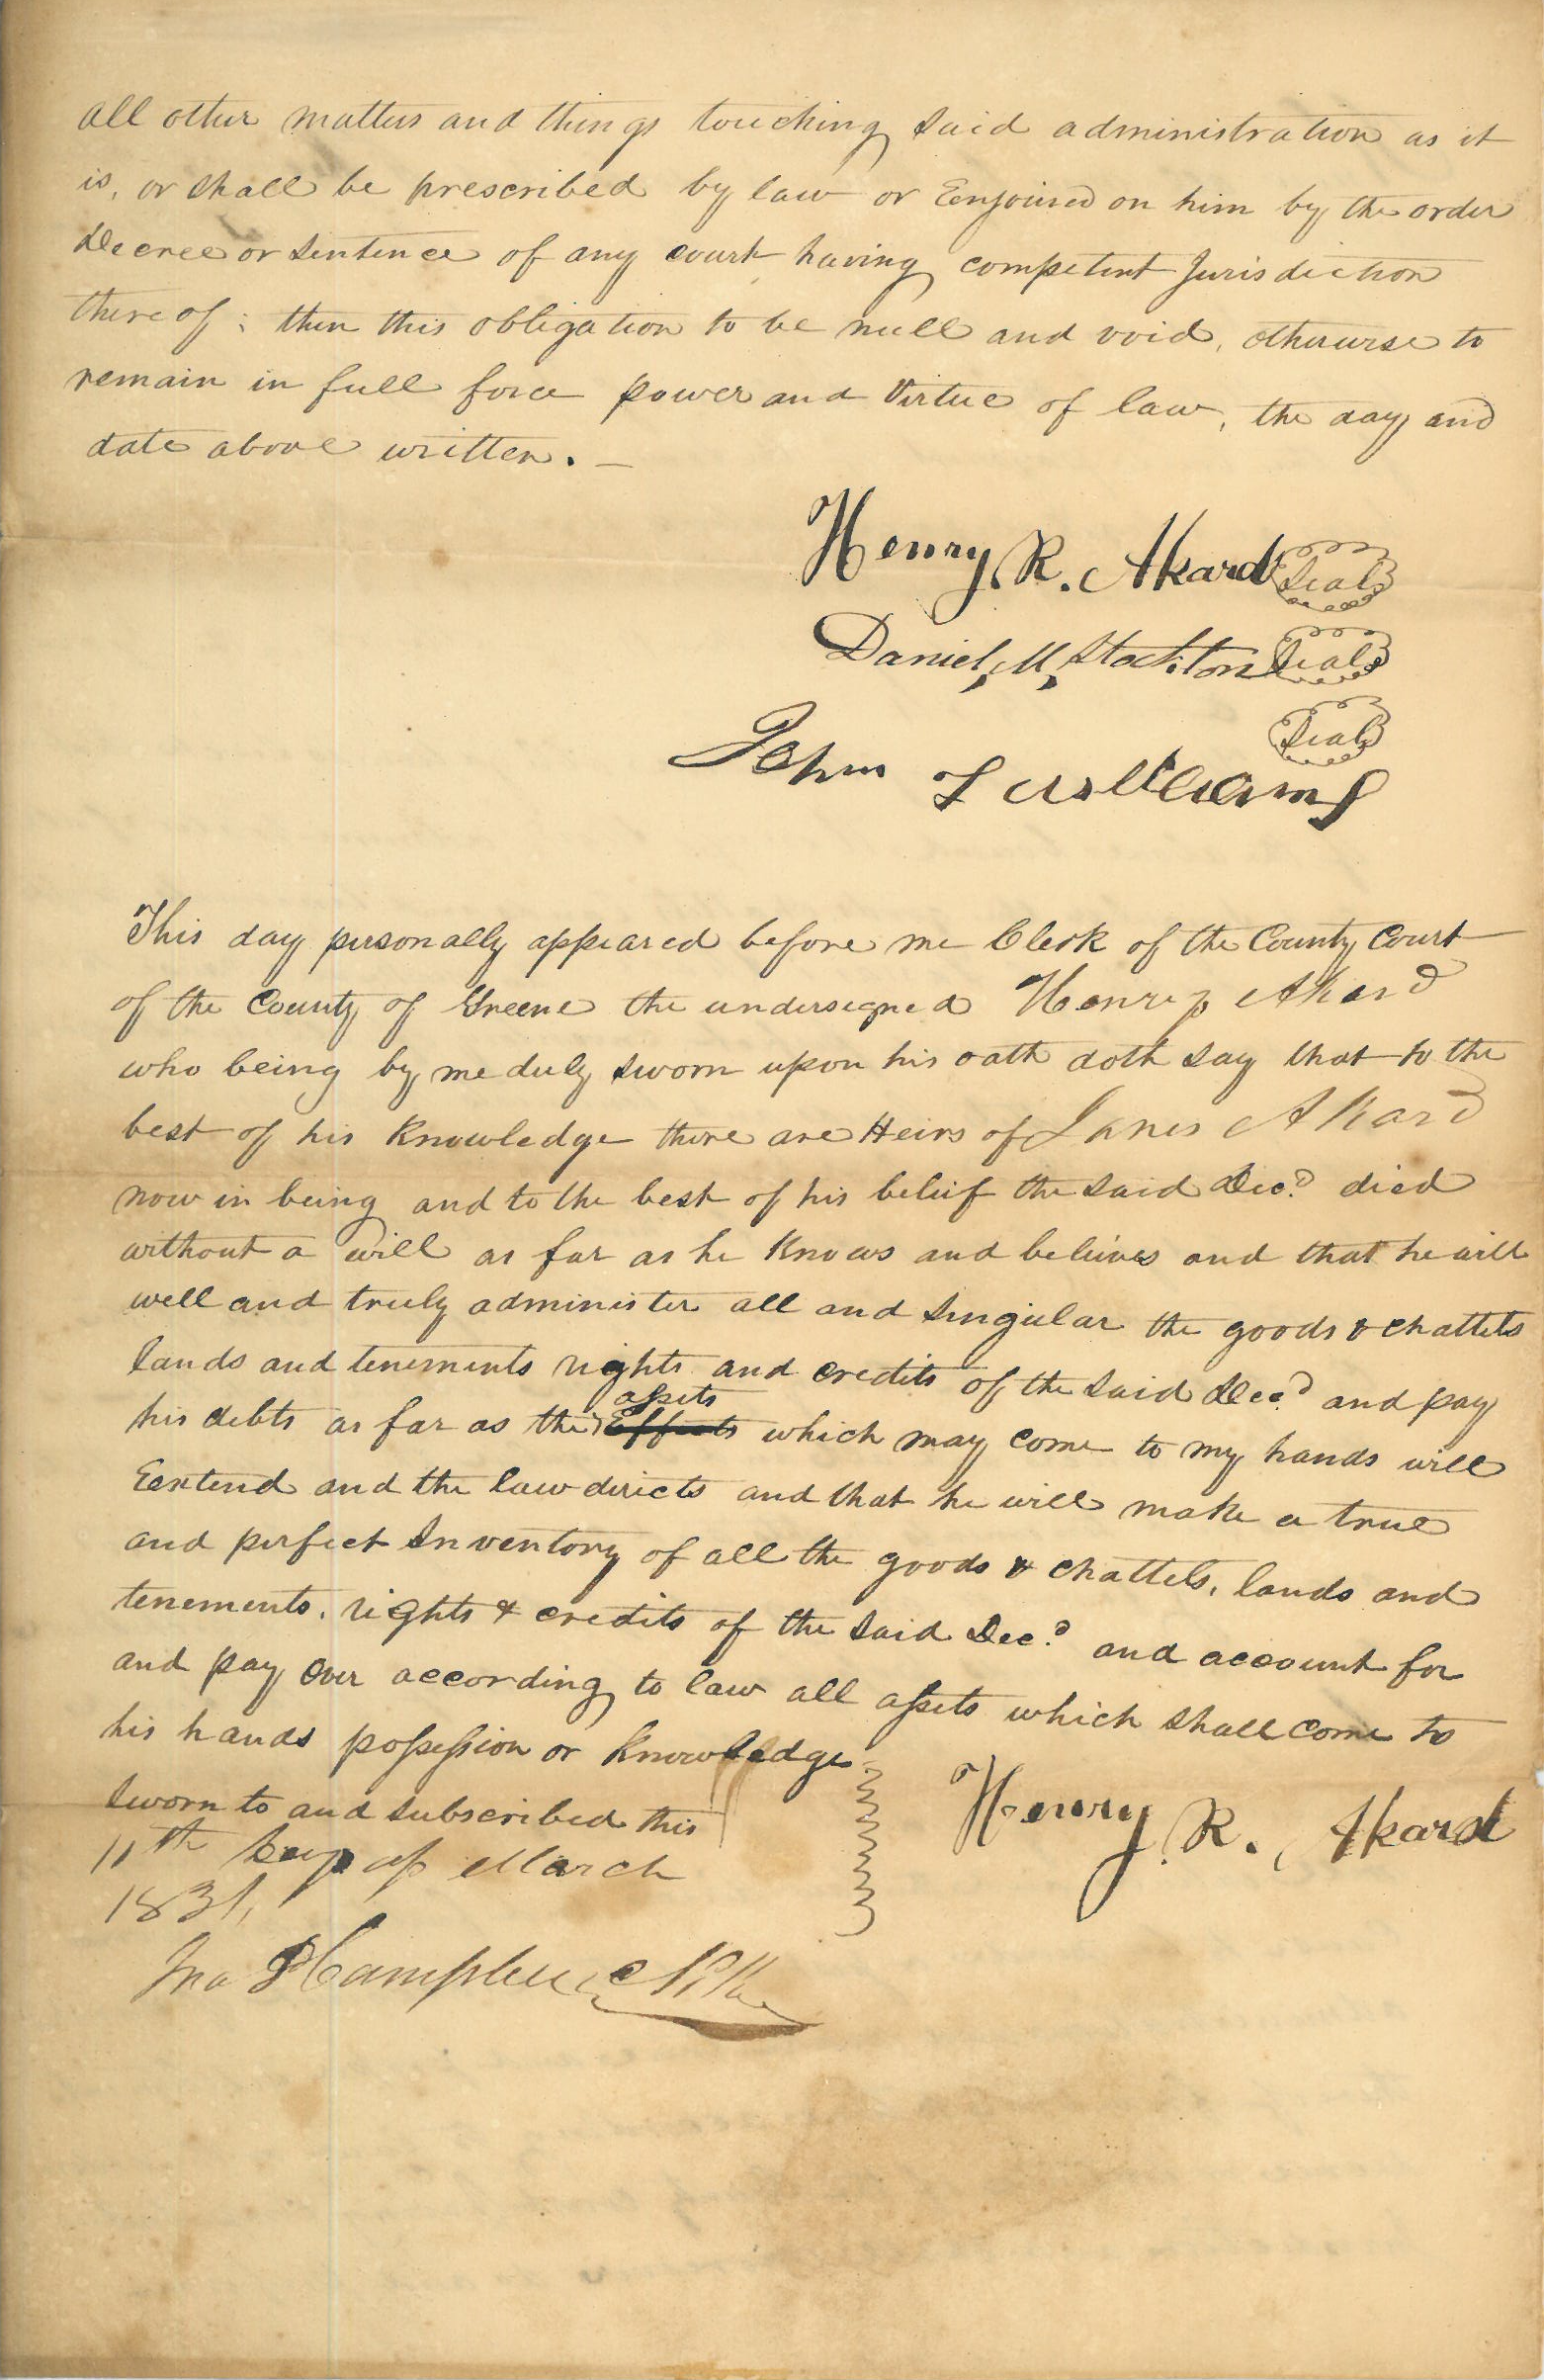 all other matters and things touching said administration as it
is, or shall be prescribed by law or Eenjoined on him by the order
Decree or sentence of any court having competent Jurisdiction
there of; then this obligation to be null and void, otherwise to
remain in full force power and Virtue of law, the day and
date above written. —
Henry R. Akard Seal
Daniel, M, Stockton Seal
Seal
John L williams
This day personally appeared before me Clerk of the County Court
of the County of Greene the undersigned Henry Akard
who being by me duly sworn upon his oath doth say that to the
best of his Knowledge there are Heirs of Akard
now in being and to the best of his beleif the said Decd died
without a will as far as he Knows and beleives and that he will
well and truly administer all and singular the goods & chattels
lands and tenements rights and credits of the said Decd and pay
assets
his debts as far as the Effects which may come to my hands will
Eextend and the law directs and that he will make a true
and perfect Inventory of all the goods & chattels, lands and
tenements, rights & credits of the said Decd and account for
and pay over according to law all assets which shall come to
his hands possession or Knowledge.
Sworn to and subscribed this
Henry R. Akard
11th day of March
183
Jno P Campbell Clk